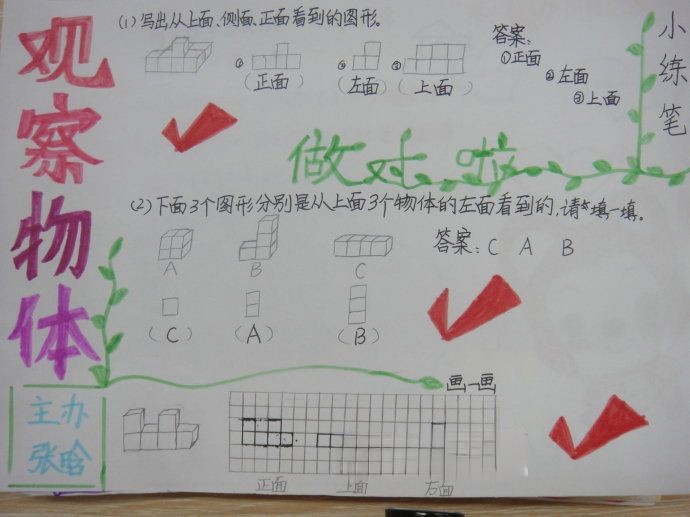 观察物体
(1)写出从上面、侧面、正面看到的图形。
① ② ③
(正面) (左面) (上面)
答案:
①正面
②左面
③上面
小练笔
做对啦
(2)下面3个图形分别是从上面3个物体的左面看到的,请填一填。
A B C
(C) (A) (B)
答案:C A B
画一画
主办
张晗
正面 上面 右面